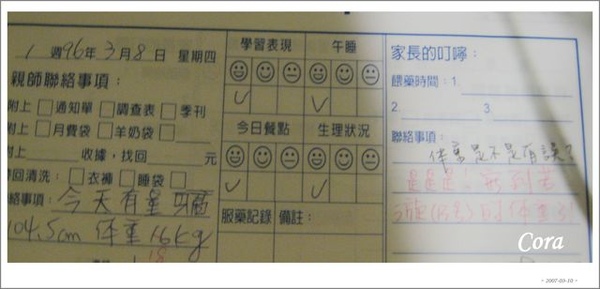 1 週96年3月8日 星期四
親師聯絡事項：
附上□通知單□調查表□季刊
附上□月費袋□羊奶袋□
附上 收據，找回 元
帶回清洗：□衣褲□睡袋□
聯絡事項：今天有量
104.5cm 体重 16kg
18
學習表現 午睡
今日餐點 生理狀況
服藥記錄 備註：
家長的叮嚀：
餵藥時間：1.
2. 3.
聯絡事項：
体重是不是有誤？
是是是！
Cora
2007-03-10